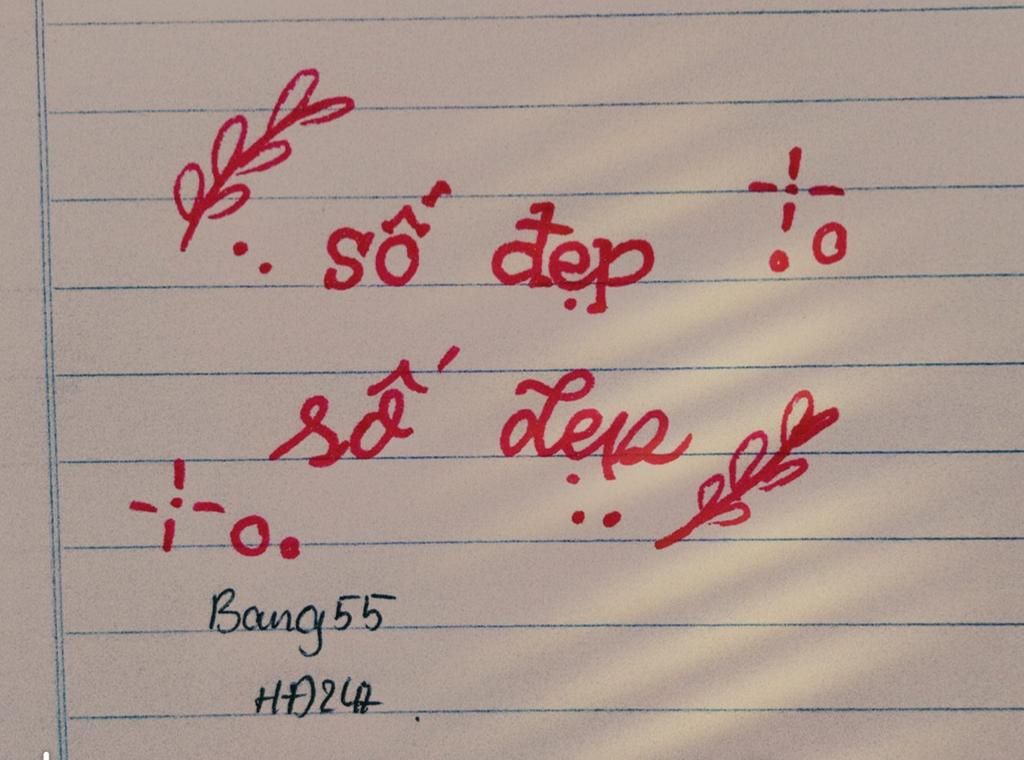 số đẹp
số đẹp
Bang55
HĐ24A